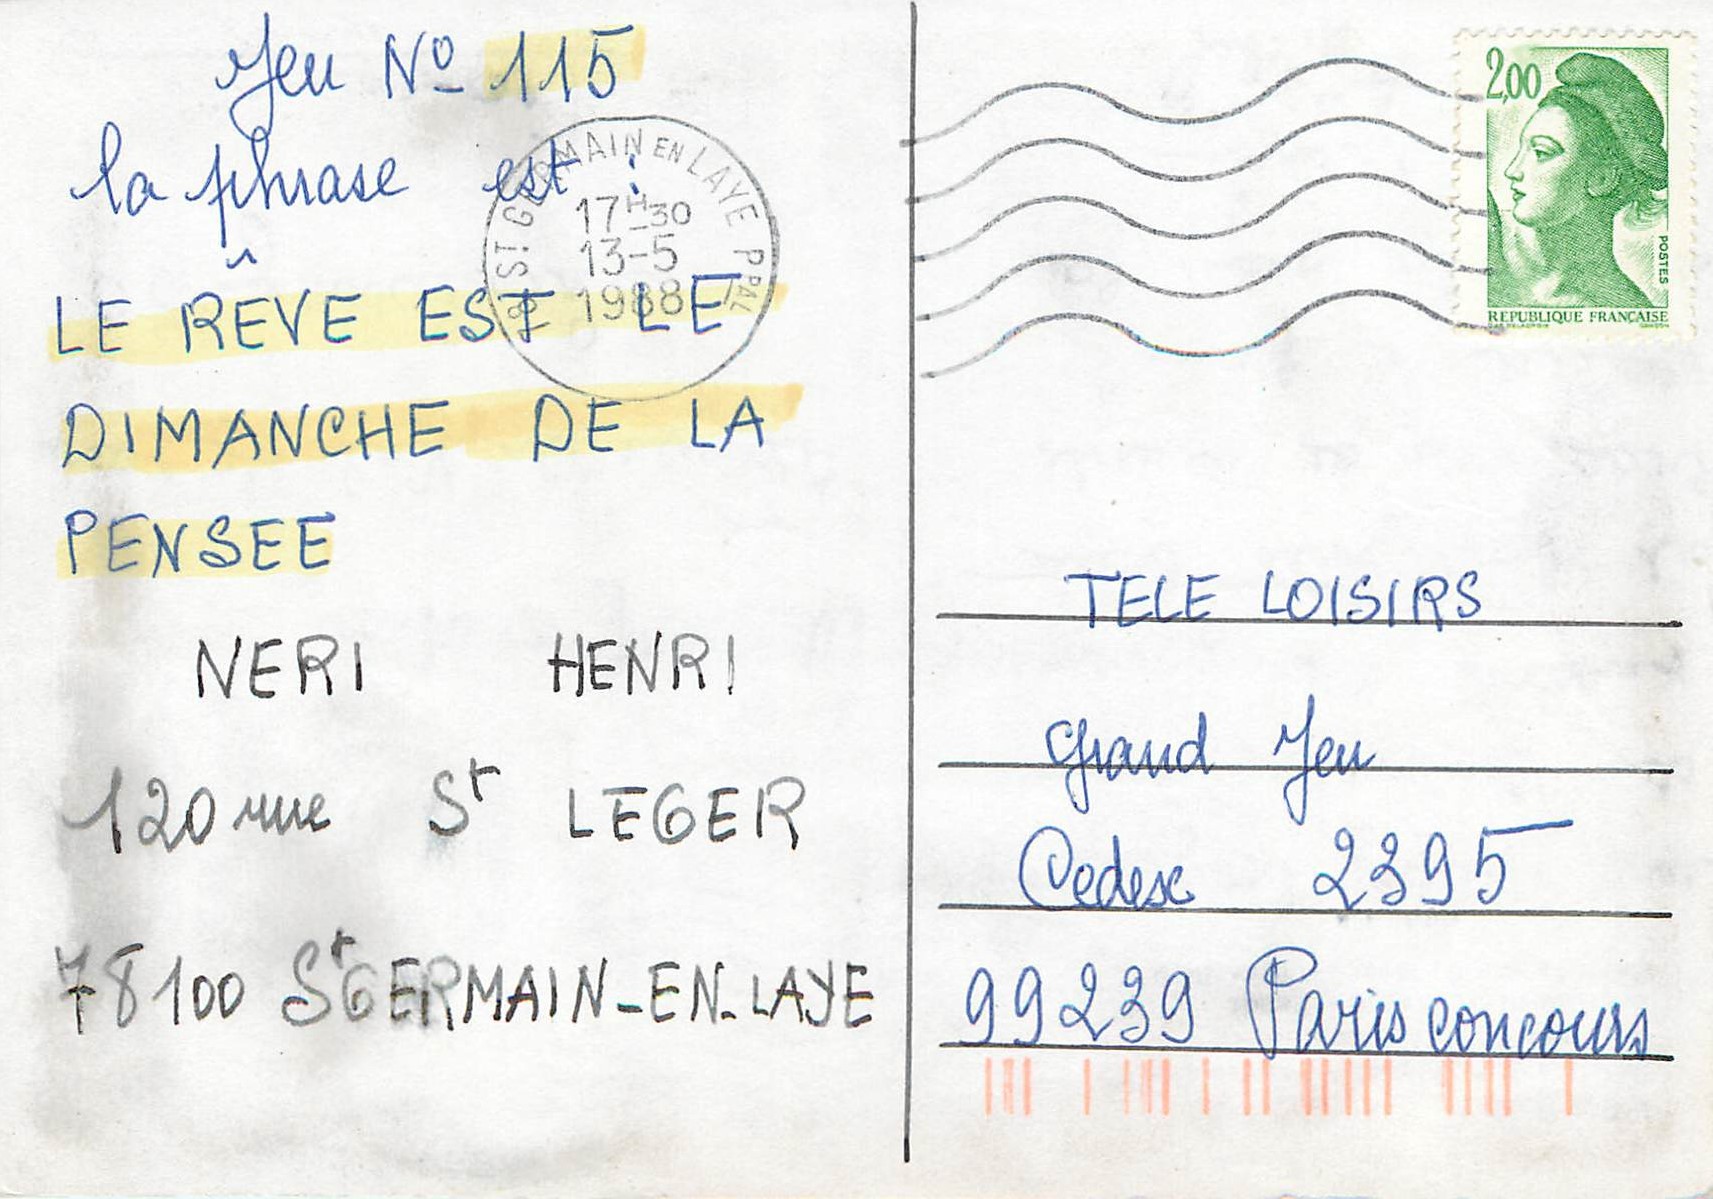 Jeu Nº 115
la phrase est :
LE RÊVE EST LE
DIMANCHE DE LA
PENSEE
NERI HENRI
120 rue St LEGER
78100 St GERMAIN-EN-LAYE
78 ST GERMAIN EN LAYE PPAL
17H30
13-5
1988
2,00
POSTES
REPUBLIQUE FRANÇAISE
TELE LOISIRS
Grand Jeu
Cedex 2395
99239 Paris concours